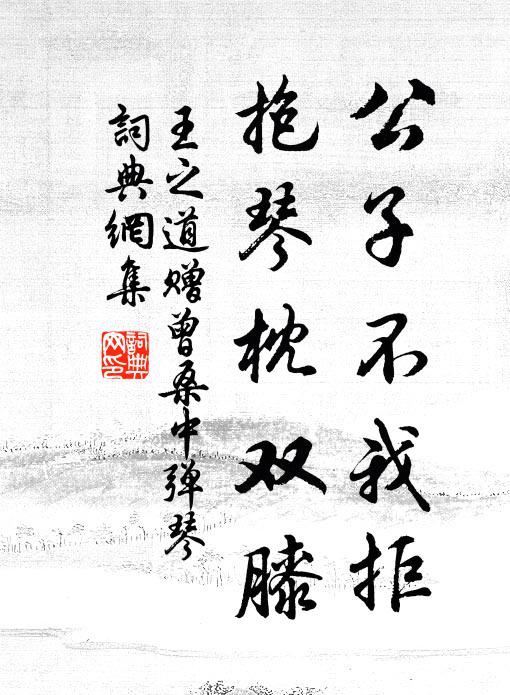 公子不我拒
抱琴枕双膝
王之道赠曾桑中弹琴
詞典網集
詞典
网印